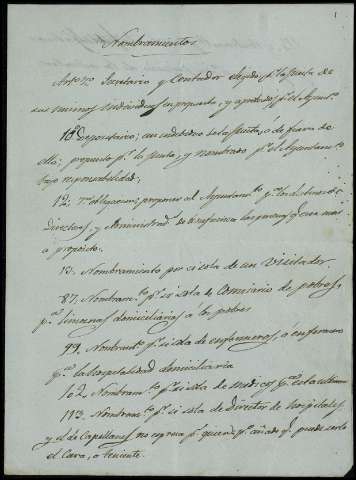 1
Nombramientos
Artº 7º Secretario y Contador elejido pr. la Junta de
sus mismos individuos en propuesta, y aprobado pr. el Ayuntº
10. Depositario; un individuo de la Junta, ó de fuera de
ella; propuesto pr. la Junta, y nombrado pr. el Ayuntamto
bajo responsabilidad.
12. 7ª obligacion; proponer al Ayuntamto pª los destinos de
Directores, y Administrad.s de Beneficencia las personas qe crea mas
a proposito.
13. Nombramiento por si sola de un Visitador
87. Nombramto pr. si sola de Comisario de pobres,
pª limosnas domiciliarias á los pobres
99. Nombramto pr. si sola de enfermeros, ó enfermeras
pª la hospitalidad domiciliaria
102. Nombramto pr. si sola de Medicos pª
113. Nombramto pr. si sola de Director de Hospitales,
y el de Capellanes no expresa pr. quien; pº añade qe puede serlo
el Cura, o teniente.